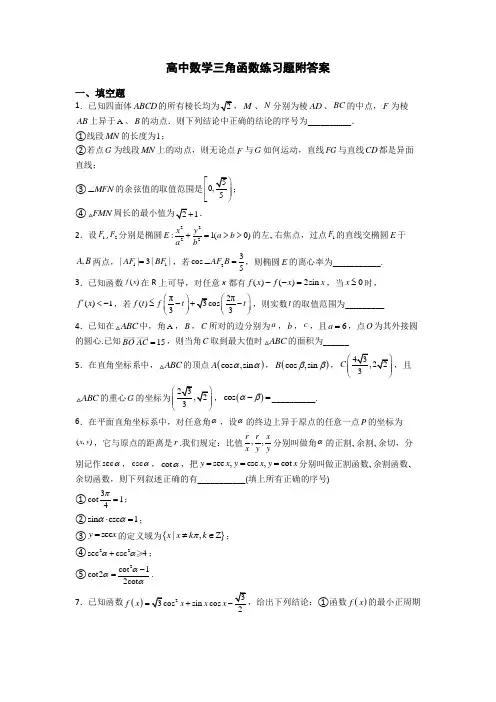 高中数学三角函数练习题附答案
一、填空题
1．已知四面体ABCD的所有棱长均为√2，M、N分别为棱AD、BC的中点，F为棱
AB上异于A、B的动点．则下列结论中正确的结论的序号为__________．
①线段MN的长度为1；
②若点G为线段MN上的动点，则无论点F与G如何运动，直线FG与直线CD都是异面
直线；
③∠MFN的余弦值的取值范围是[0, √5/5)；
④△FMN周长的最小值为√2+1．
2．设F₁,F₂分别是椭圆E: x²/a²+y²/b²=1(a>b>0)的左,右焦点，过点F₁的直线交椭圆E于
A,B两点，|AF₁|=3|BF₁|，若cos∠AF₂B=3/5，则椭圆E的离心率为___________.
3．已知函数f(x)在R上可导，对任意x都有f(x)−f(−x)=2sin x，当x≤0时，
f′(x)<−1，若f(t)≤f(π/3−t)+√3cos(2π/3−t)，则实数t的取值范围为_________
4．已知在△ABC中，角A，B，C所对的边分别为a，b，c，且a=6，点O为其外接圆
的圆心.已知BO·AC=15，则当角C取到最大值时△ABC的面积为______
5．在直角坐标系中，△ABC的顶点A(cosα,sinα)，B(cosβ,sinβ)，C(4√3/3,2√2)，且
△ABC的重心G的坐标为(2√3/3,√2)，cos(α−β)=__________.
6．在平面直角坐标系中，对任意角α，设α的终边上异于原点的任意一点P的坐标为
(x,y)，它与原点的距离是r.我们规定：比值r/x,r/y,x/y分别叫做角α的正割､余割､余切，分
别记作secα，cscα，cotα，把y=sec x,y=csc x,y=cot x分别叫做正割函数､余割函数､
余切函数，则下列叙述正确的有___________(填上所有正确的序号)
①cot 3π/4=1；
②sinα·cscα=1；
③y=secx的定义域为{x|x≠kπ,k∈Z}；
④sec²α+csc²α⩾4；
⑤cot2α=(cot²α−1)/(2cotα)．
7．已知函数f(x)=√3cos²x+sin x cos x−√3/2，给出下列结论：①函数f(x)的最小正周期